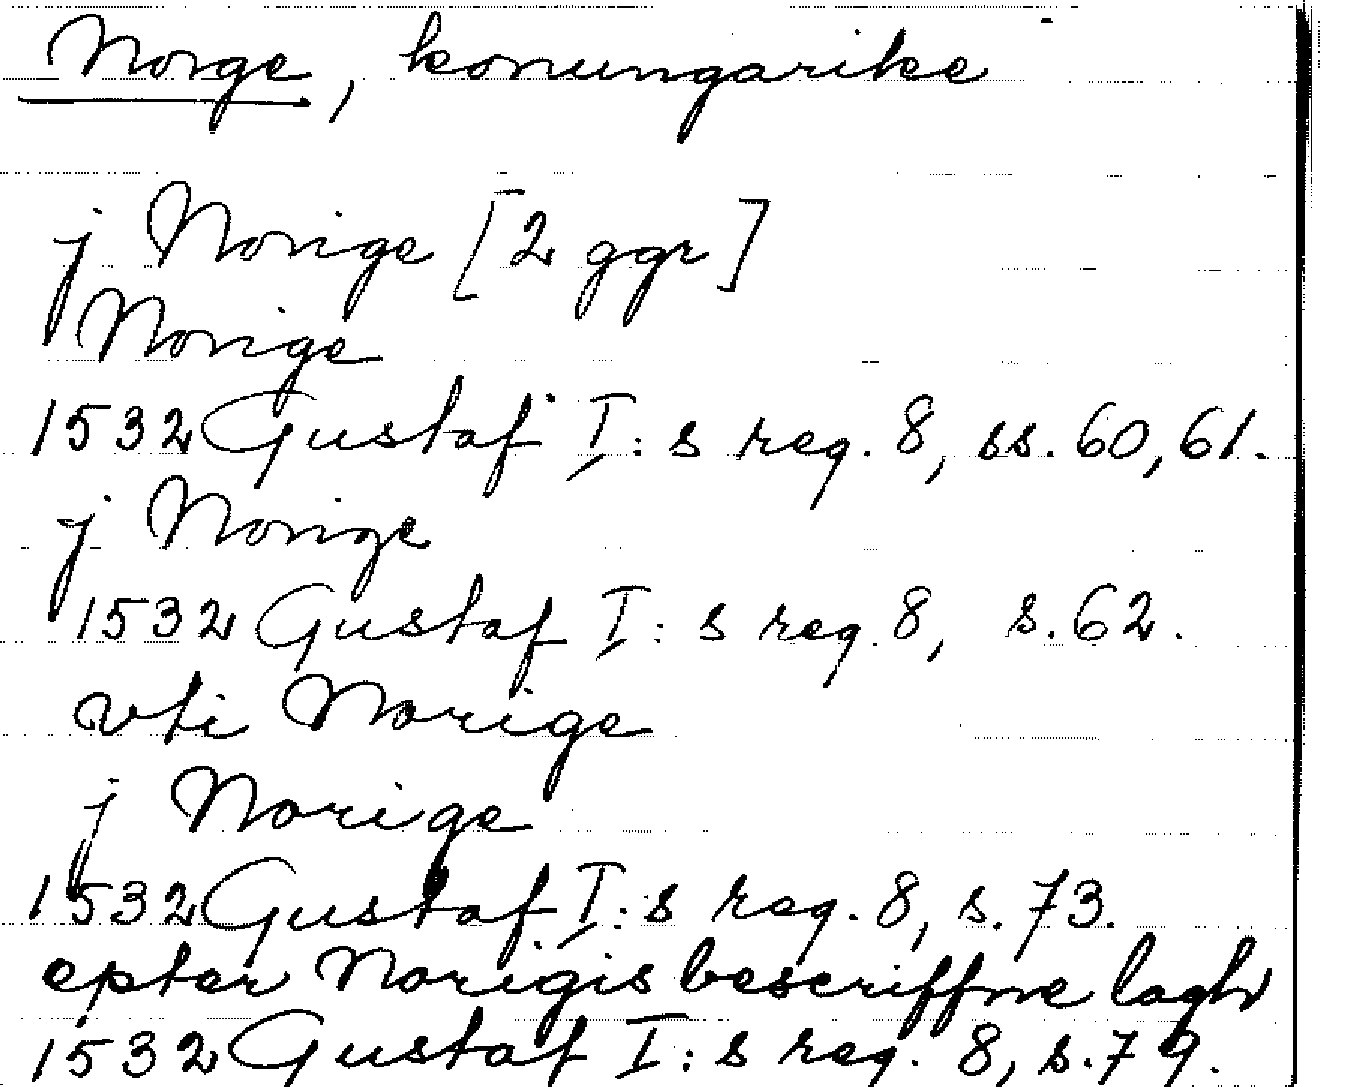 Norge, konungarike
j Norige [2 ggr]
Norige
1532 Gustaf I:s reg. 8, ss. 60, 61.
j Norige
1532 Gustaf I:s reg. 8, s. 62.
vti Norige
j Norige
1532 Gustaf I:s reg. 8, s. 73.
epter Norigis bescriffne lagh
1532 Gustaf I:s reg. 8, s. 79.